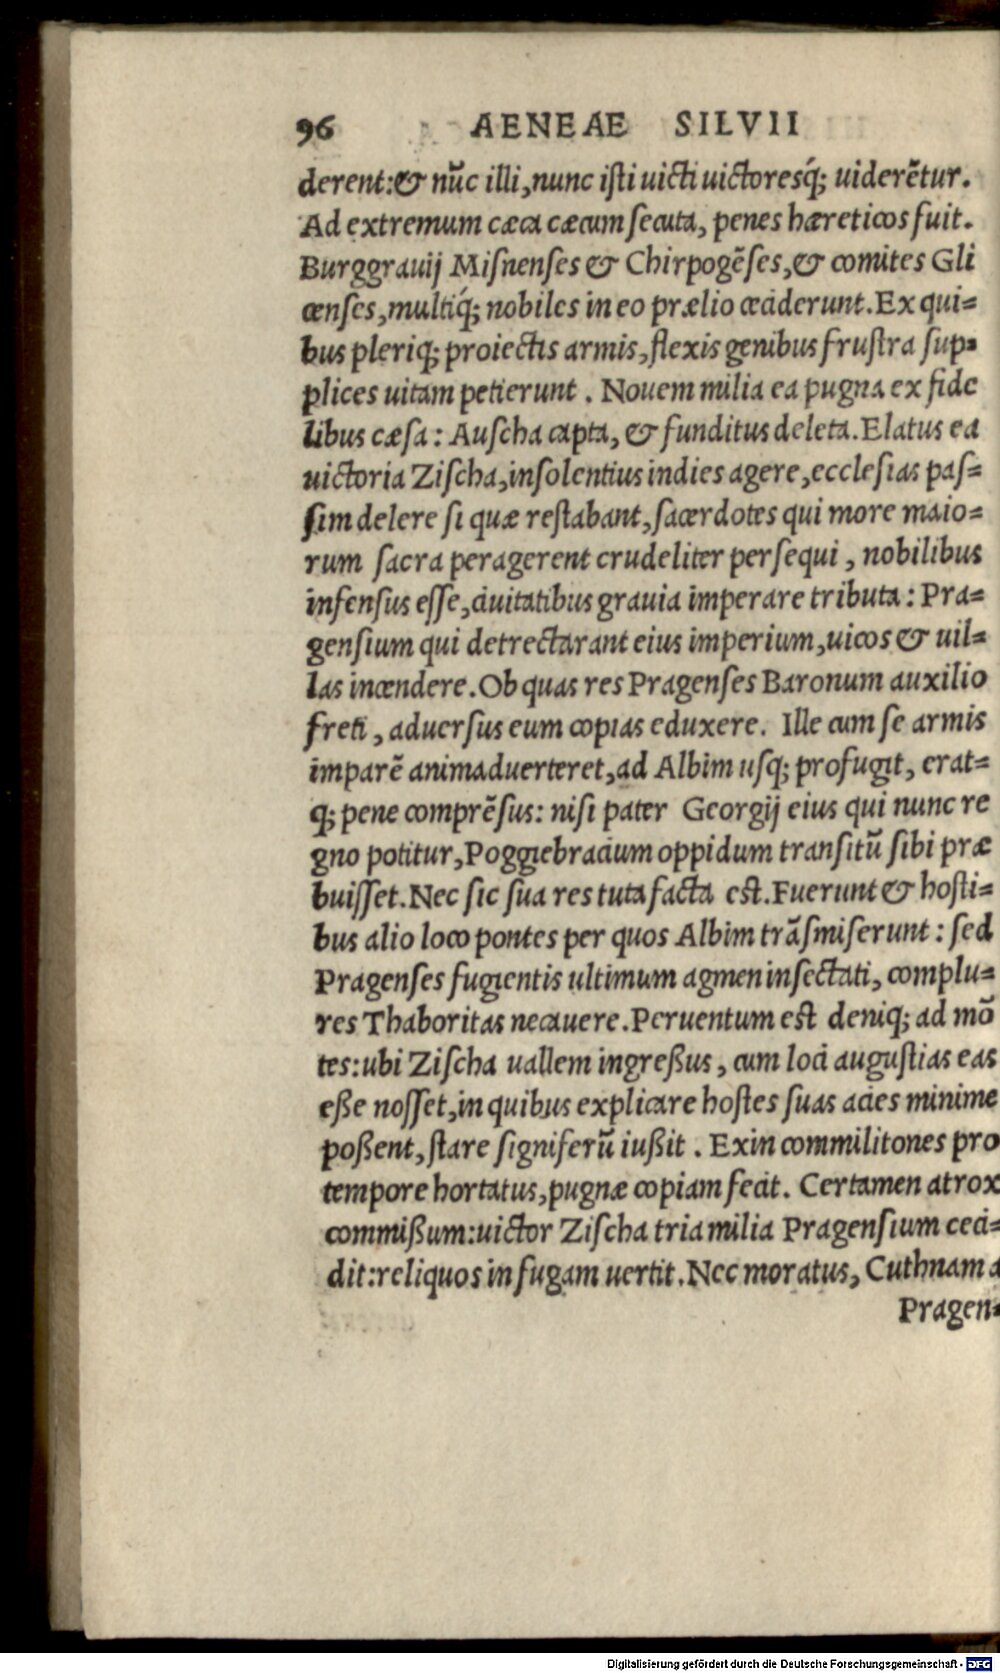 96 AENEAE SILVII
derent:& nũc illi,nunc iſti uicti uictoresq́; uiderẽtur.
Ad extremum cæca cæcum ſecuta, penes hæreticos fuit.
Burggrauij Miſnenſes & Chirpogẽſes,& comites Gli
cenſes,multiq́; nobiles in eo prælio ceciderunt.Ex qui=
bus pleriq; proiectis armis,flexis genibus fruſtra ſup=
plices uitam petierunt . Nouem milia ea pugna ex fide
libus cæſa: Auſcha capta, & funditus deleta.Elatus ea
uictoria Ziſcha,inſolentius indies agere,eccleſias paſ=
ſim delere ſi quæ reſtabant,ſacerdotes qui more maio=
rum ſacra peragerent crudeliter perſequi , nobilibus
infenſus eſſe,ciuitatibus grauia imperare tributa: Pra=
genſium qui detrectarant eius imperium,uicos & uil=
las incendere.Ob quas res Pragenſes Baronum auxilio
freti , aduerſus eum copias eduxere. Ille cum ſe armis
imparẽ animaduerteret,ad Albim uſq; profugit, erat=
q; pene comprẽſus: niſi pater Georgij eius qui nunc re
gno potitur,Poggiebracium oppidum tranſitũ ſibi præ
buiſſet.Nec ſic ſua res tuta facta eſt.Fuerunt & hoſti=
bus alio loco pontes per quos Albim trãſmiſerunt : ſed
Pragenſes fugientis ultimum agmen inſectati, complu=
res Thaboritas necauere.Peruentum eſt deniq; ad mõ
tes:ubi Ziſcha uallem ingreßus , cum loci auguſtias eas
eße noſſet,in quibus explicare hoſtes ſuas acies minime
poßent,ſtare ſigniferũ iußit . Exin commilitones pro
tempore hortatus,pugnæ copiam fecit. Certamen atrox
commißum:uictor Ziſcha tria milia Pragenſium ceci=
dit:reliquos in fugam uertit.Nec moratus, Cuthnam a
Pragen=
Digitalisierung gefördert durch die Deutsche Forschungsgemeinschaft - DFG